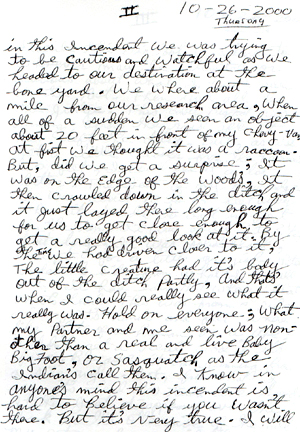 II 10-26-2000
Thursday
in this Incendent we was trying
to be Cautious and watchful as we
headed to our destination at the
bone yard. We where about a
mile from our research area, When
all of a sudden we seen an object
about 20 feet in front of my Chevy-Van
at first we thought it was a raccoon.
But, did we get a surprise; It
was on the Edge of the Woods, it
then crawled down in the ditch and
it just layed there long enough
for us to get close enough to
get a really good look at it. By
then We had driven closer to it;
The little creature had it's body
out of the ditch Partly, And that's
when I could really see what it
really was. Hold on everyone; What
my Partner and me seen was non-
other than a real and live Baby
Bigfoot, or Sasquatch as the
Indian's call them. I know in
anyone's mind this incendent is
hard to believe if you wasn't
there. But it's very true. I will